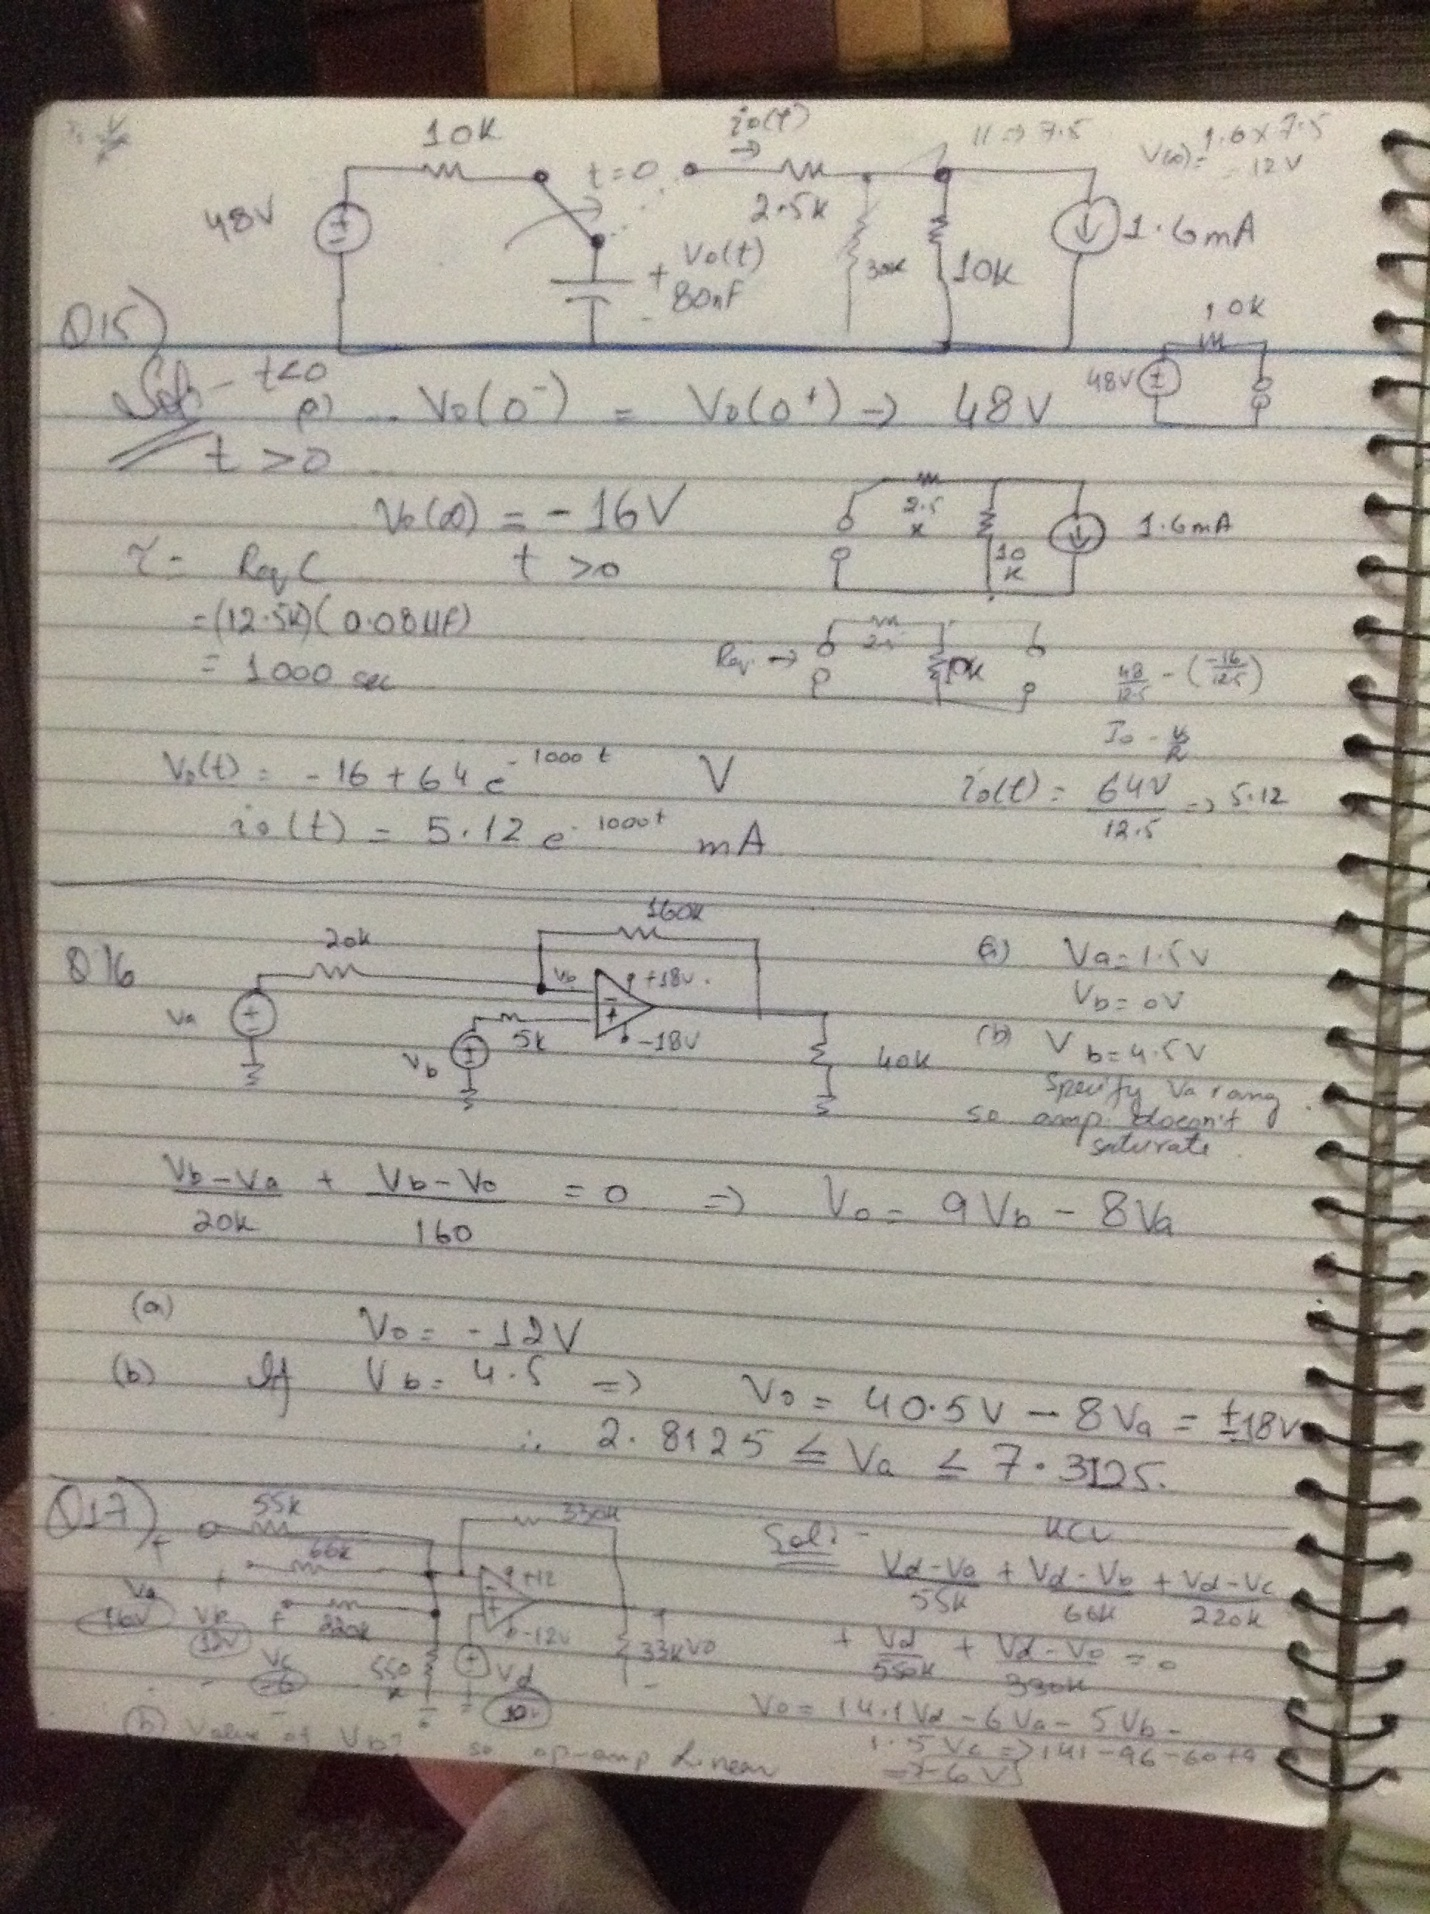 10K
io(t)
11 => 7.5
1.6 x 7.5
V(∞) =
- 12 V
48V
t=0
2.5K
1.6mA
+ Vo(t)
80nF
-
30K
10K
Q15)
10K
48V
Sol:- t<0
Vo(0⁻) = Vo(0⁺) → 48V
t >0
Vo(∞) = -16V
2.5
K
10
K
1.6mA
τ = Req C t >0
=(12.5K)(0.08µF)
= 1000 sec
Req. →
2.5
10K
48/12.5 - (-16/12.5)
Io - V/R
Vo(t) = -16+64 e^-1000t V
io(t) = 64V/12.5 => 5.12
io(t) = 5.12 e^-1000t mA
Q16
20K
160K
Va
Vb
+18V.
5K
-18V
Vb
40K
(a) Va=1.5V
Vb=0V
(b) Vb=4.5V
Specify Va rang
so amp. doesn't
saturate.
Vb-Va/20K + Vb-Vo/160 = 0 => Vo= 9Vb - 8Va
(a) Vo = -12V
(b) If Vb= 4.5 => Vo = 40.5V - 8Va = ±18V
∴ 2.8125 ≤ Va ≤ 7.3125.
Q17)
55K
330K
66K
+12
Va
16V
Vb
12V
220K
-12V
Vc
-6
550
K
Vd
10V
33K Vo
Sol:- KCL
Vd-Va/55K + Vd-Vb/66K + Vd-Vc/220K
+ Vd/550K + Vd-Vo/330K = 0
Vo = 14.1Vd - 6Va - 5Vb -
1.5Vc => 141-96-60+9
(b) Value of Vb? so op-amp Linear